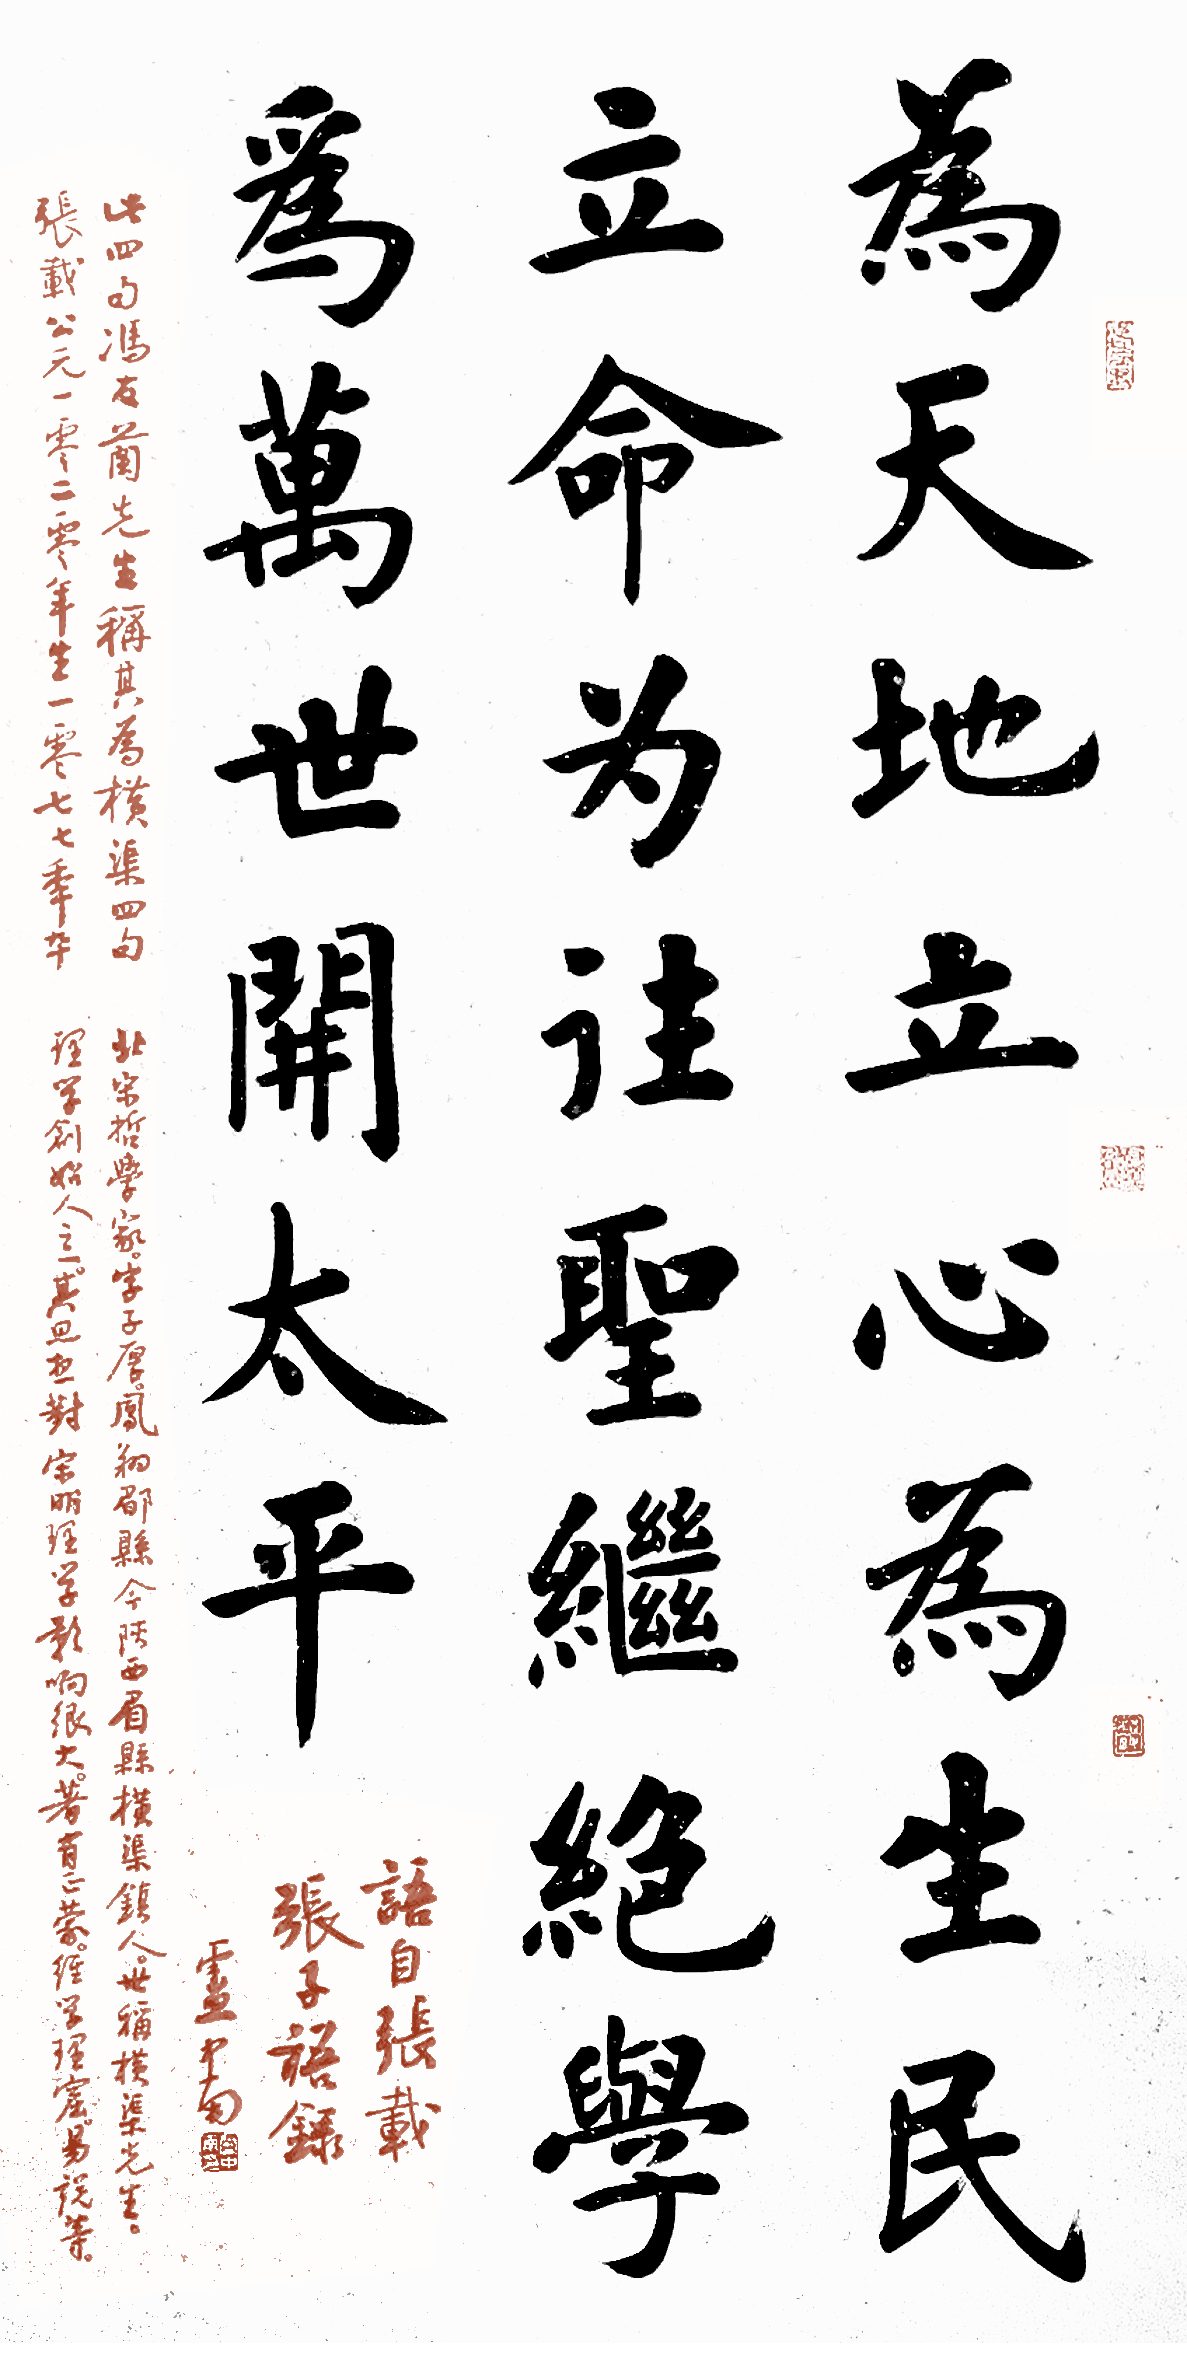 為天地立心為生民
立命为往聖繼絶學
爲萬世開太平
語自張載
張子語録
盧中南
此四句馮友蘭先生稱其為橫渠四句
張載公元一零二零年生一零七七年卒
北宋哲學家。字子厚。鳳翔郿縣今陝西眉縣橫渠鎮人。世稱橫渠先生。
理学創始人之一。其思想對宋明理学影响很大。著有正蒙。經学理窟。易説等。